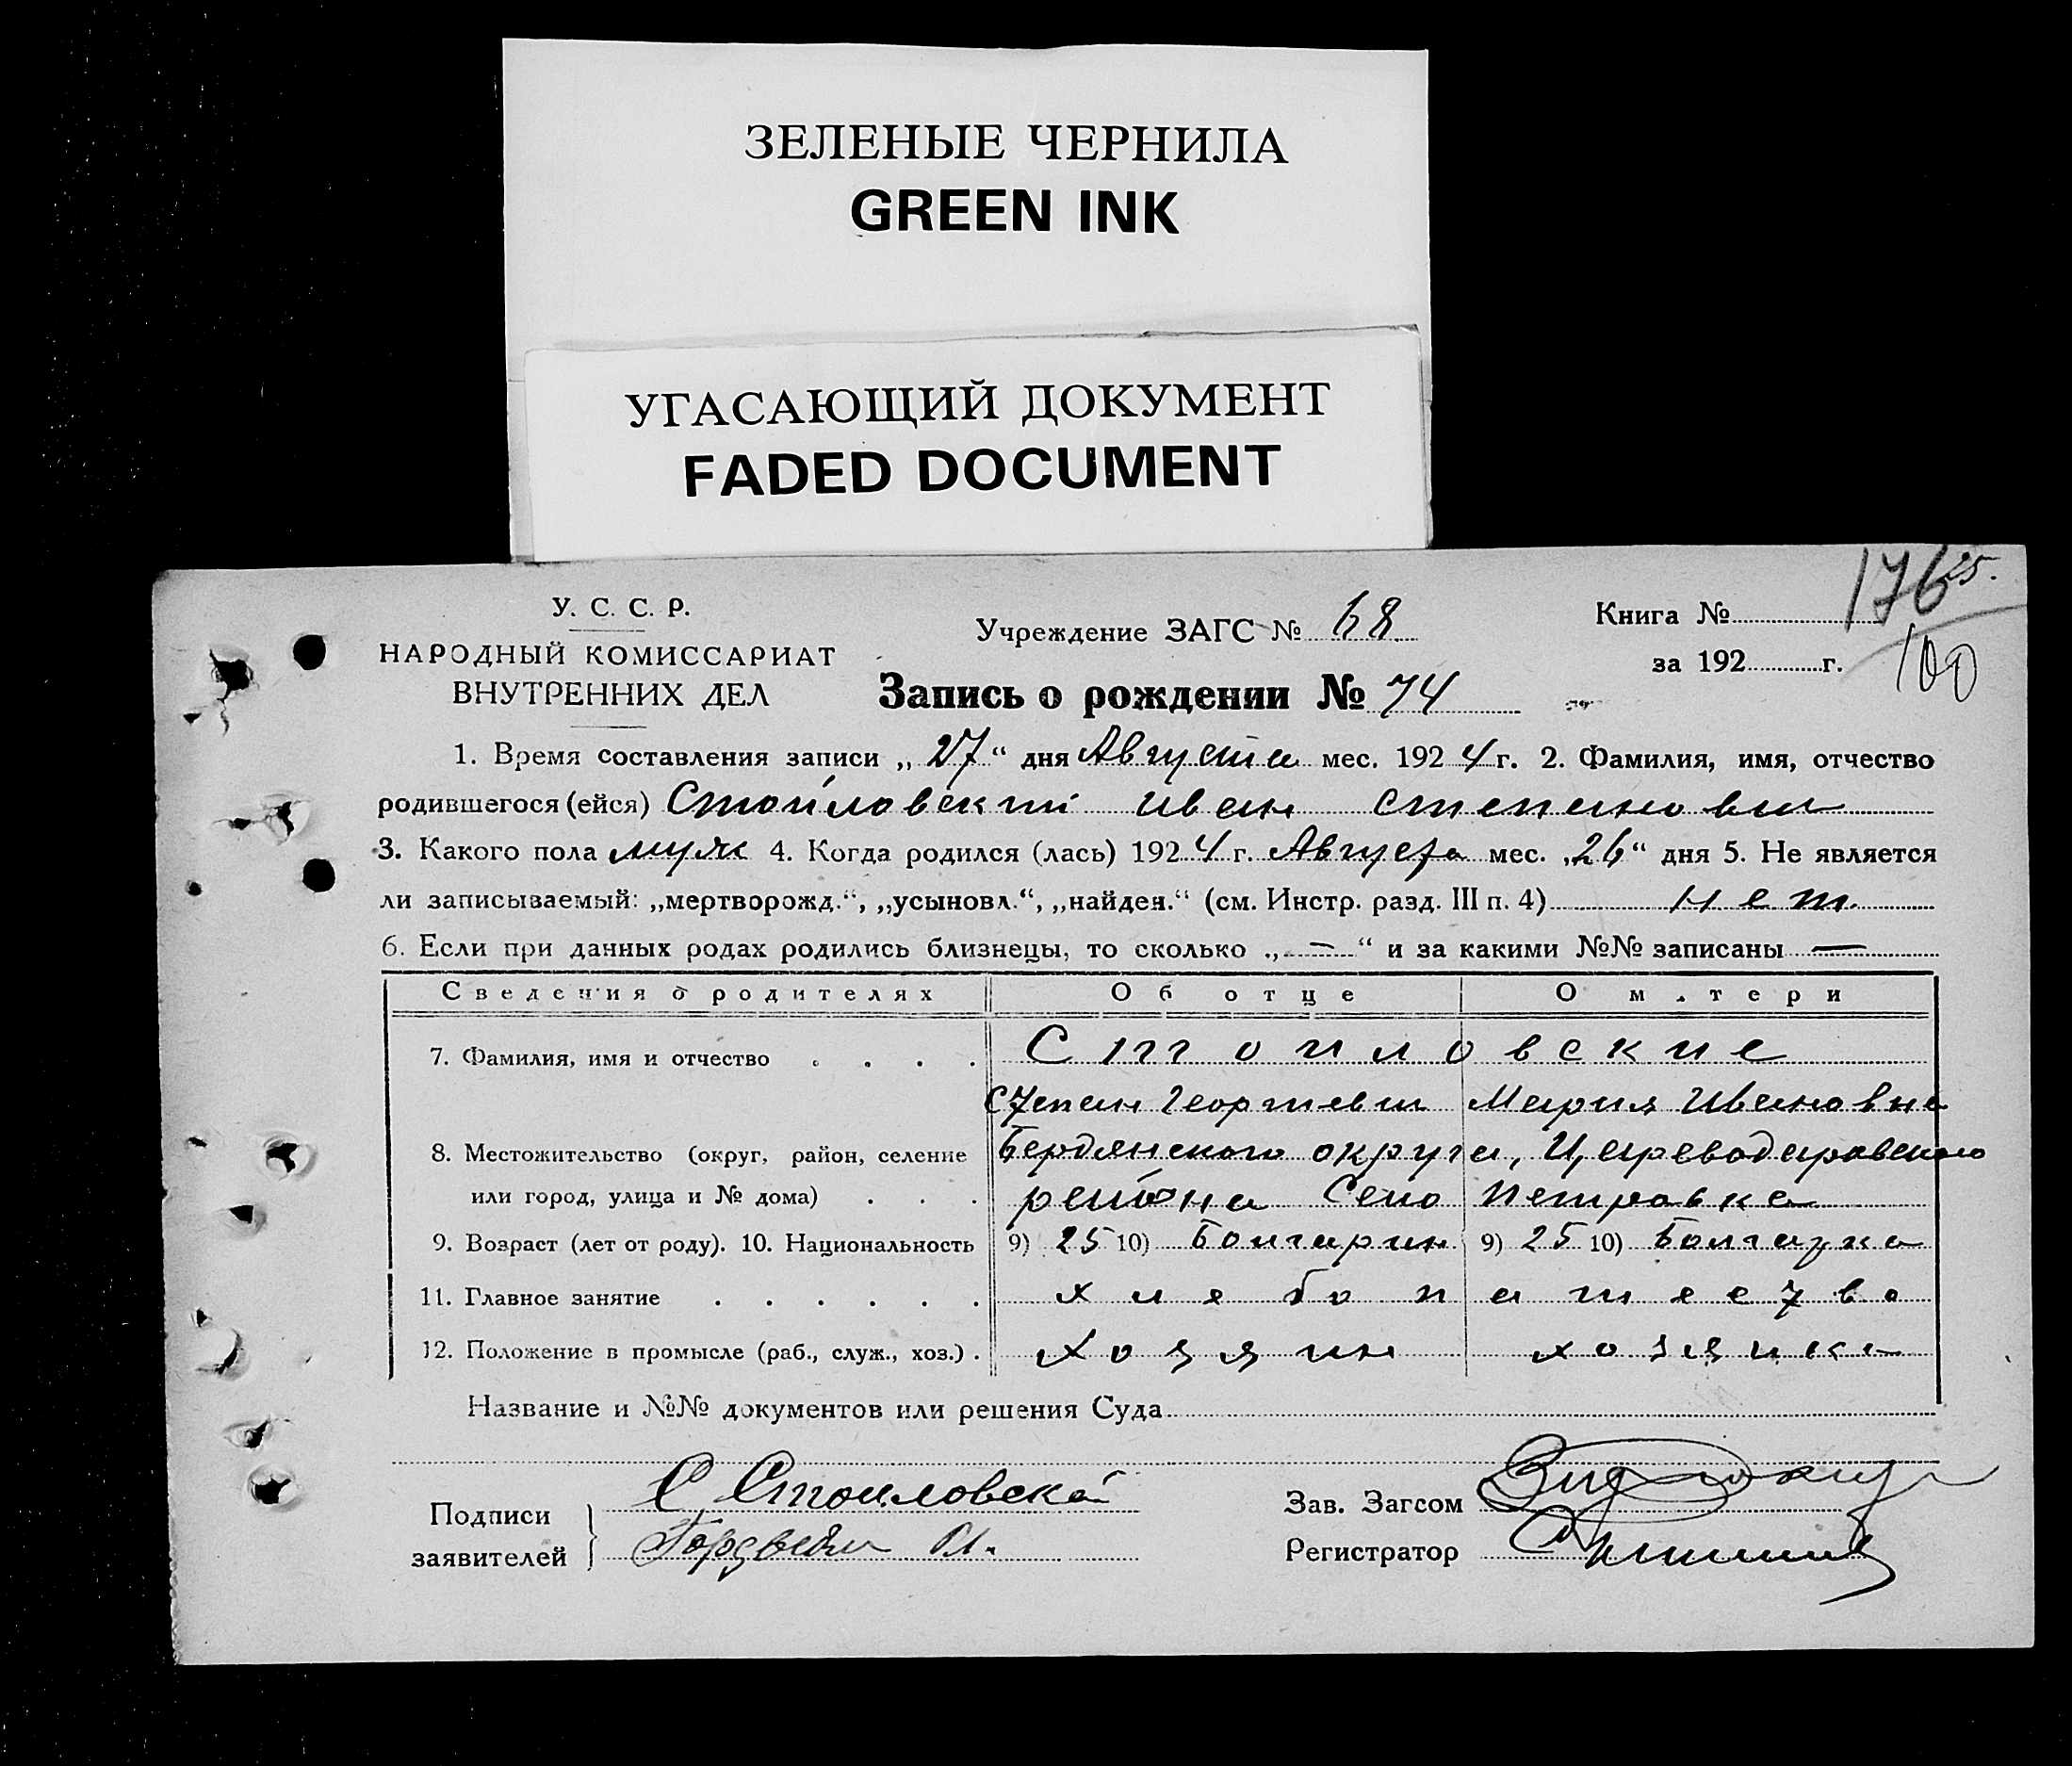 ЗЕЛЕНЫЕ ЧЕРНИЛА
GREEN INK
УГАСАЮЩИЙ ДОКУМЕНТ
FADED DOCUMENT
У. С. С. Р.
НАРОДНЫЙ КОМИССАРИАТ
ВНУТРЕННИХ ДЕЛ
Учреждение ЗАГС № 68
Запись о рождении № 74
Книга № 176 25.
за 192 г. 100
1. Время составления записи „27“ дня Августа мес. 1924 г. 2. Фамилия, имя, отчество
родившегося (ейся) Стоиловский Иван Степанович
3. Какого пола муж 4. Когда родился (лась) 1924 г. Августа мес. „26“ дня 5. Не является
ли записываемый: „мертворожд.“, „усыновл.“, „найден.“ (см. Инстр. разд. III п. 4) нет.
6. Если при данных родах родились близнецы, то сколько „—“ и за какими №№ записаны —
Сведения о родителях Об отце О матери
7. Фамилия, имя и отчество . . . . Стоиловские
Степан Георгиевич Мария Ивановна
8. Местожительство (округ, район, селение Бердянского округа, Цареводаровского
или город, улица и № дома) . . . района Село Петровка
9. Возраст (лет от роду). 10. Национальность 9) 25 10) Болгарин 9) 25 10) Болгарка
11. Главное занятие . . . . . . хлебопашество
12. Положение в промысле (раб., служ., хоз.) . хозяин хозяйка
Название и №№ документов или решения Суда
Подписи С Стоиловской
заявителей
Зав. Загсом
Регистратор